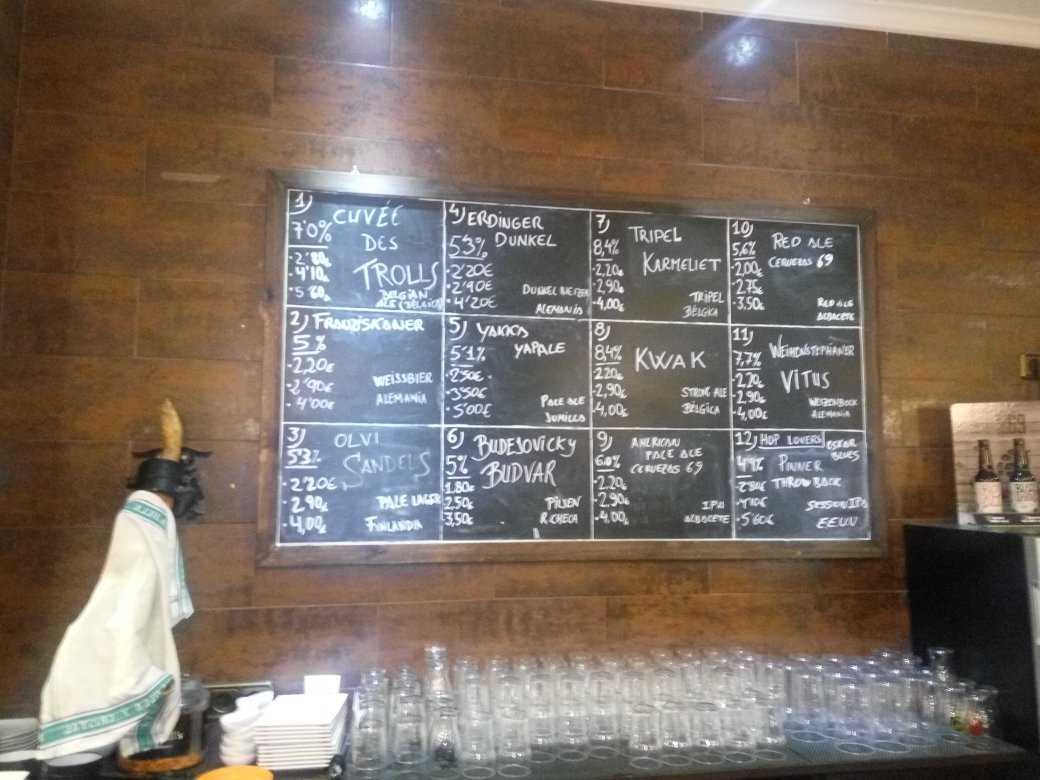 1)
CUVÉE
7'0%
DES
TROLLS
4'10
BELGIAN
ALE (BELGICA
2) FRANZISKANER
5%
2,20€
2'90€
WEISSBIER
4'00€
ALEMANIA
3)
OLVI
5'3%
SANDELS
2'20€
2,90€
PALE LAGER
4,00€
FINLANDIA
4) ERDINGER
5'3%
DUNKEL
2'20€
2'90€
DUNKEL WEIZEN
4'20€
ALEMANIA
5) YAKKA
5'1%
YAPALE
2'50€
3'50€
PALE ALE
5'00€
JUMILLA
6)
BUDEJOVICKY
5%
BUDVAR
1,80€
2,50€
PILSEN
3,50€
R.CHECA
7)
TRIPEL
8,4%
KARMELIET
2,20€
2,90€
TRIPEL
4,00€
BÉLGICA
8)
8,4%
KWAK
2,20€
2,90€
STRONG ALE
4,00€
BÉLGICA
9)
AMERICAN
PALE ALE
CERVEZAS 69
2,20€
2,90€
IPA
4,00€
ALBACETE
10)
RED ALE
5,6%
CERVEZAS 69
2,00€
2,75€
3,50€
RED ALE
ALBACETE
11)
WEIHENSTEPHANER
7,7%
VITUS
2,20€
2,90€
WEIZENBOCK
4,00€
ALEMANIA
12) HOP LOVERS
OSKAR
BLUES
PINNER
THROWBACK
SESSION IPA
5'60€
EEUU